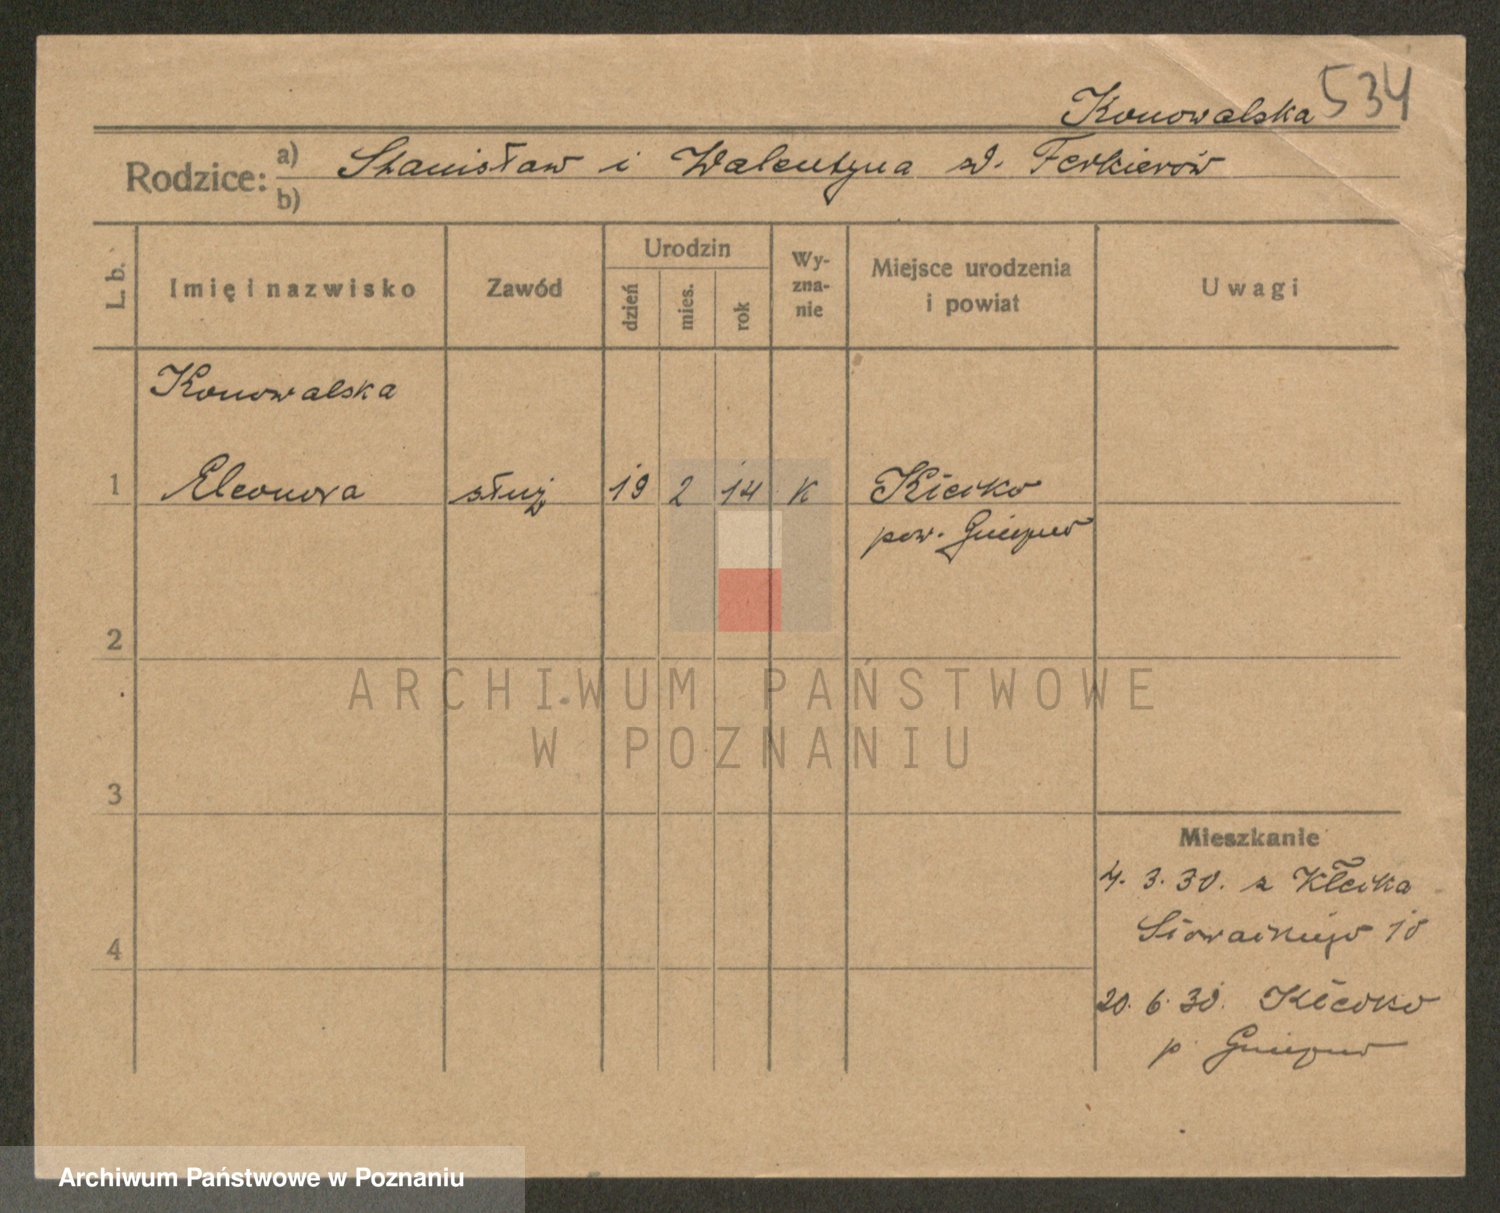 Konowalska 534
Rodzice: a) Stanisław i Walentyna z d. Ferkierów
b)
L. b. Imię i nazwisko Zawód Urodzin dzień mies. rok Wyznanie Miejsce urodzenia i powiat Uwagi
Konowalska
1 Eleonora służ 19 2 14 K Kłecko
pow. Gniezno
2
ARCHIWUM PAŃSTWOWE
W POZNANIU
3
Mieszkanie
4. 3. 30. z Kłecka
4 Słowackiego 10
20. 6. 30. Kłecko
p. Gniezno
Archiwum Państwowe w Poznaniu